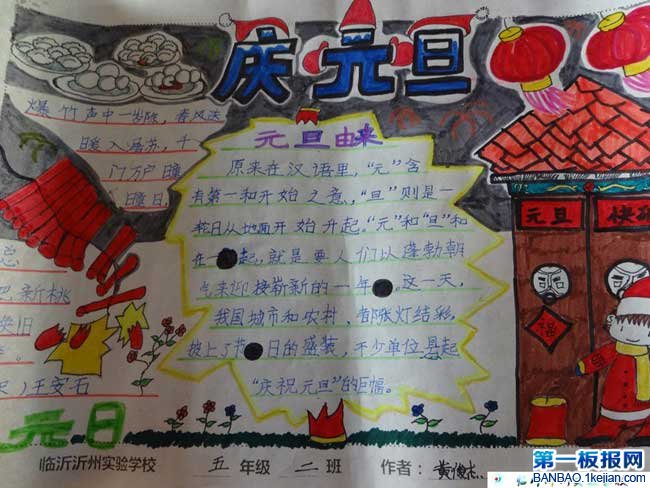 庆元旦
爆竹声中一岁除,春风送
暖入屠苏,千
门万户曈
曈日,
总
把新桃
换旧
王安石
元日
元旦由来
原来在汉语里,“元”含
有第一和开始之意,“旦”则是一
轮日从地面开始升起。“元”和“旦”和
在一起,就是要人们以蓬勃朝
气来迎接崭新的一年。这一天,
我国城市和农村,都张灯结彩,
披上了节日的盛装,不少单位悬起
“庆祝元旦”的巨幅。
元旦 快乐
福
临沂沂州实验学校 五年级二班 作者:黄俊
第一板报网
BANBAO.1kejian.com